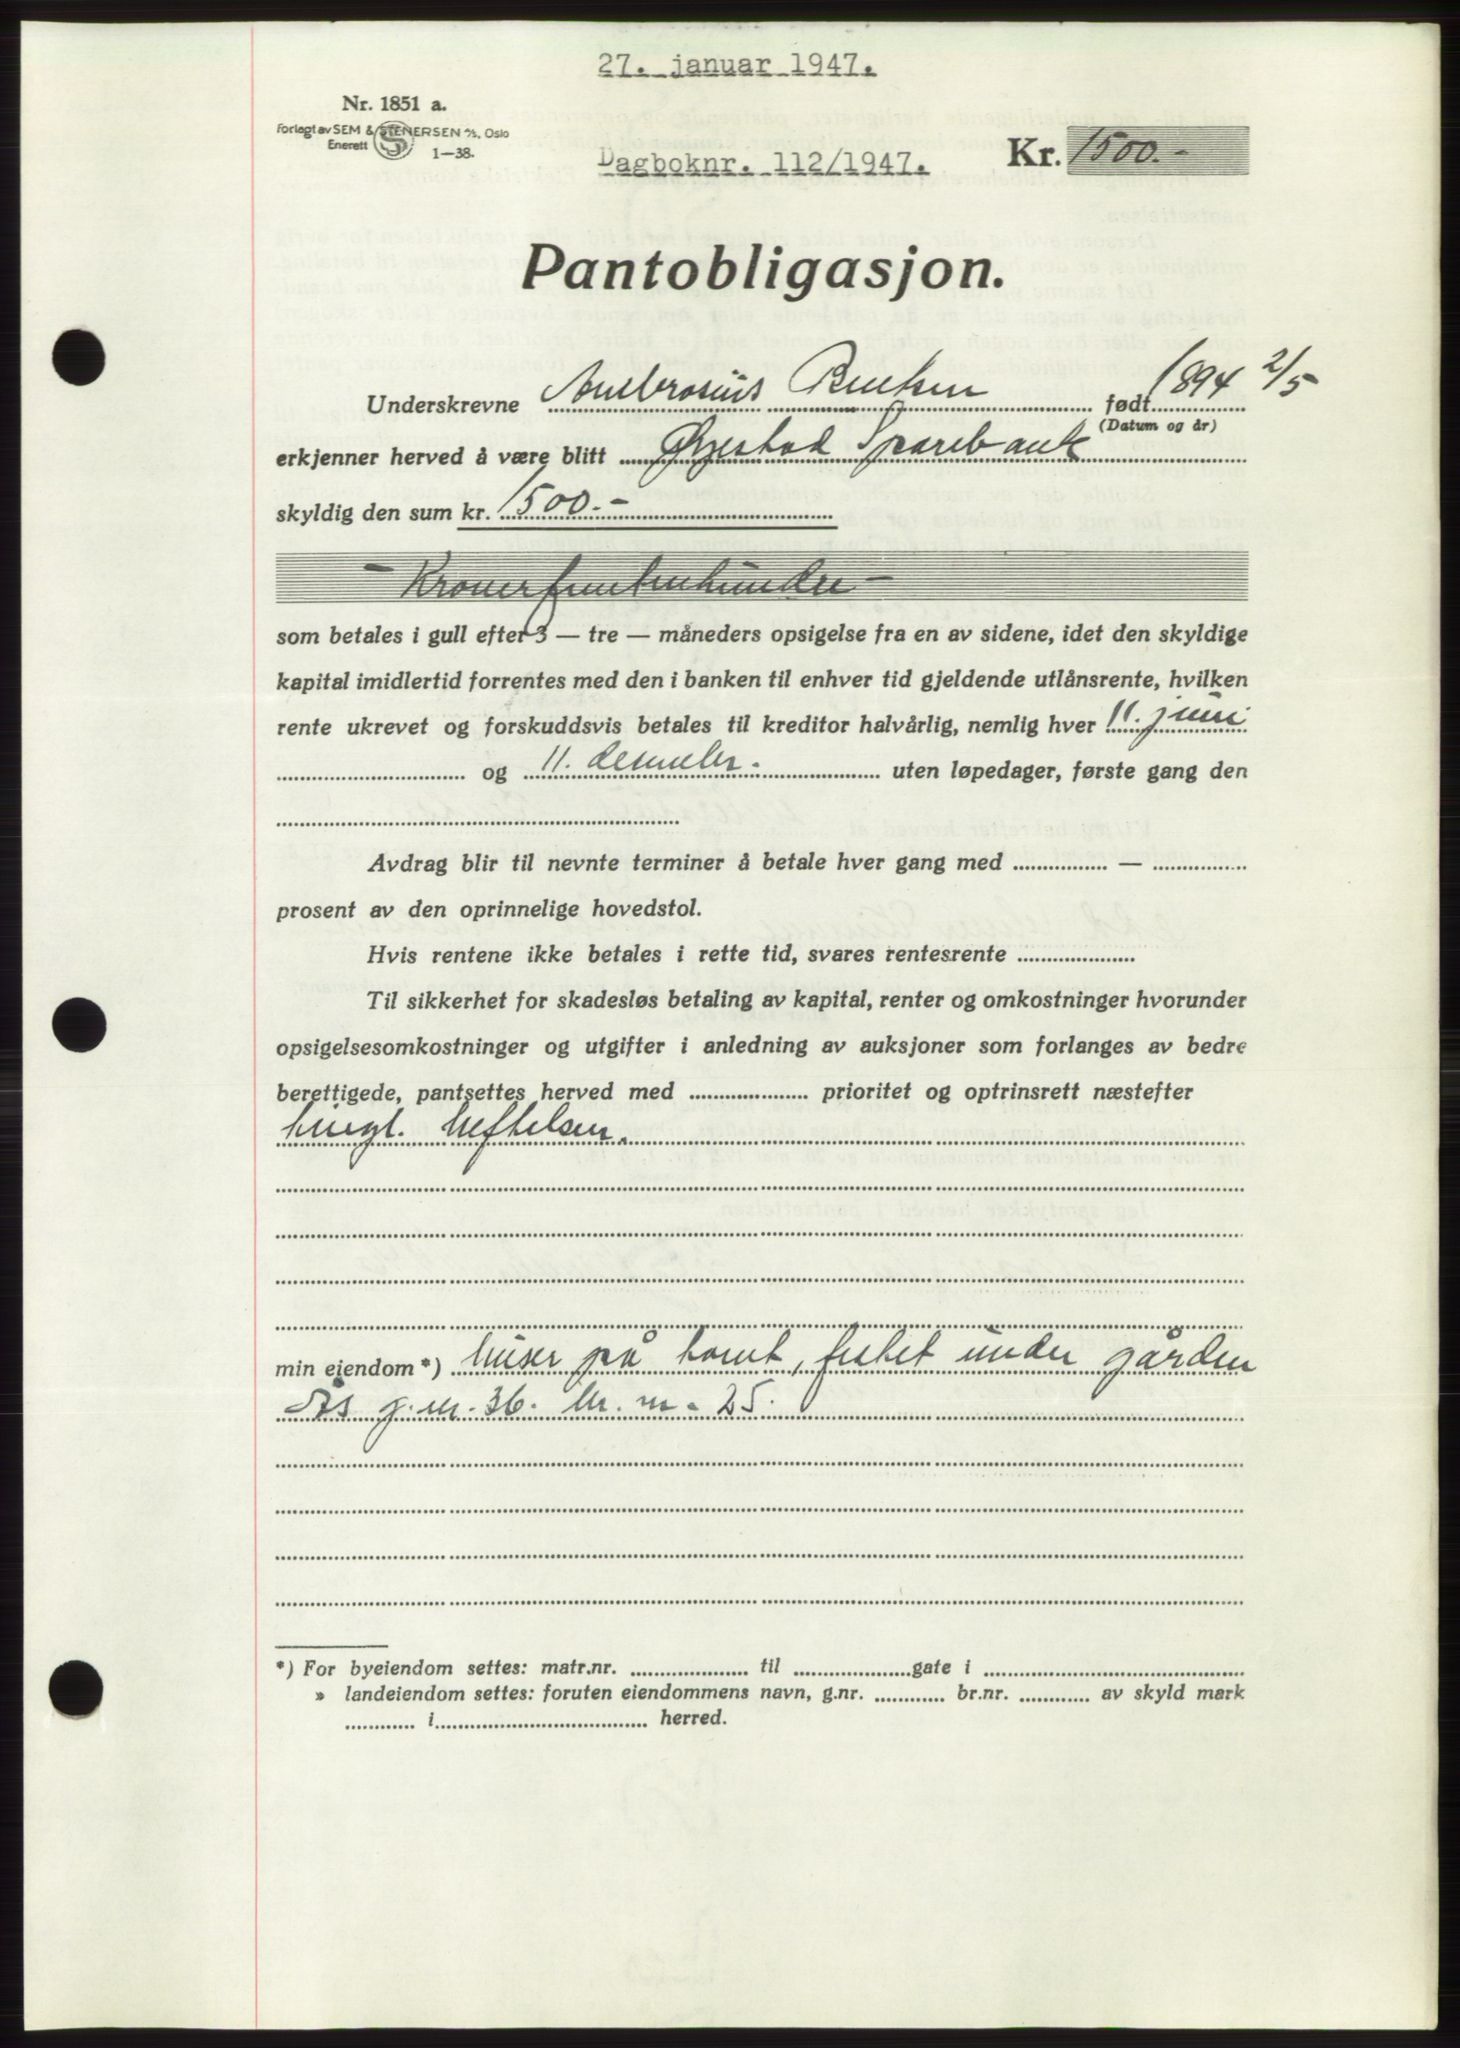 27. januar 1947.
Nr. 1851 a.
Forlagt av SEM & STENERSEN A/S, Oslo
Enerett
1—38.
Dagboknr. 112/1947.
Kr. 1500.-
Pantobligasjon.
Underskrevne Ambrosius født 1894 2/5
(Datum og år)
erkjenner herved å være blitt Øyestad Sparebank
skyldig den sum kr. 1500.-
- Kroner femtenhundre -
som betales i gull efter 3 — tre — måneders opsigelse fra en av sidene, idet den skyldige
kapital imidlertid forrentes med den i banken til enhver tid gjeldende utlånsrente, hvilken
rente ukrevet og forskuddsvis betales til kreditor halvårlig, nemlig hver 11. juni
og 11. desember. uten løpedager, første gang den
Avdrag blir til nevnte terminer å betale hver gang med —
prosent av den oprinnelige hovedstol.
Hvis rentene ikke betales i rette tid, svares rentesrente
Til sikkerhet for skadesløs betaling av kapital, renter og omkostninger hvorunder
opsigelsesomkostninger og utgifter i anledning av auksjoner som forlanges av bedre
berettigede, pantsettes herved med prioritet og optrinsrett næstefter
tingl. heftelser.
min eiendom *) huser på tomt, festet under gården
Ås g.nr. 36. br. nr. 25.
*) For byeiendom settes: matr.nr. til gate i
» landeiendom settes: foruten eiendommens navn, g.nr. br.nr. av skyld mark
i herred.